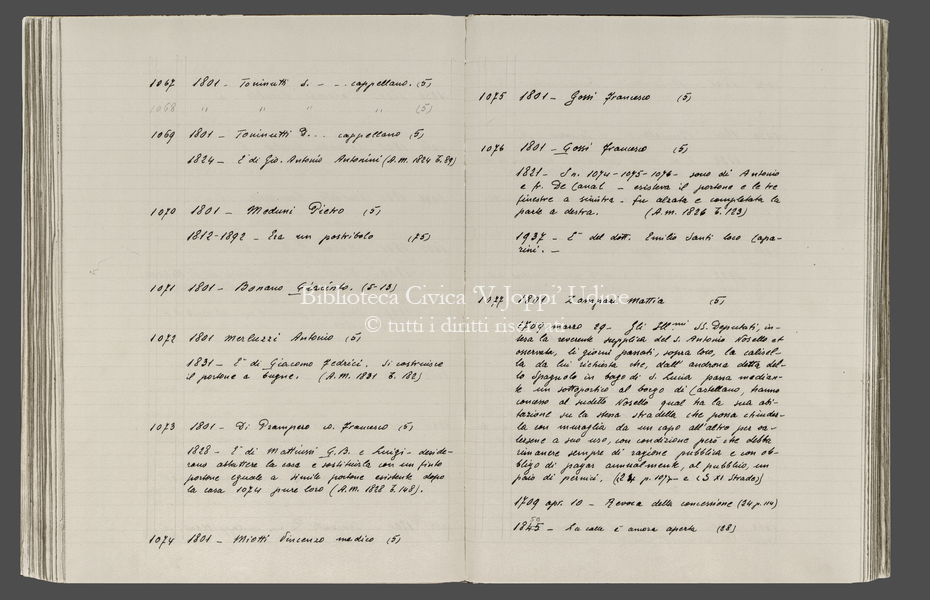 1067 1801 - Toninutti S. - - . cappellano. (5)
1068 " " " " (5)
1069 1801 - Toninutti D... cappellano (5)
1824 - E' di Gio. Antonio Antonini (A.M. 1824 I. 89)
1070 1801 - Meduni Pietro (5)
1812-1892 - Era un postribolo (75)
1071 1801 - Bonano Giacinto. (5-13)
1072 1801 Merluzzi Antonio (5)
1831 - E' di Giacomo Fedrici. Si costruisce
il portone a bugne. (A.M. 1831 I. 182)
1073 1801 - Di Prampero co. Francesco (5)
1828 - E' di Mattiussi G.B. e Luigi - deside-
rano abbattere la casa e sostituirla con un finto
portone eguale a simile portone esistente dopo
la casa 1074 pure loro (A.M. 1828 I. 148).
1074 1801 - Miotti Vincenzo medico (5)
1075 1801 - Gossi Francesco (5)
1076 1801 - Gossi Francesco (5)
1821 - I n. 1074-1075-1076 - sono di Antonio
e fr. De Canal - esisteva il portone e le tre
finestre a sinistra - fu alzata e completata la
parte a destra. (A.M. 1826 I. 123)
1937 - E' del dott. Emilio Santi loco Capa-
rini. -
Biblioteca Civica 'V. Joppi' Udine
© tutti i diritti riservati
1077 1801 - Zampar Mattia (5)
1709 marzo 29 - Gli Ill.mi SS. Deputati, in-
tesa la reverente supplica del S. Antonio Nosello et
osservata, li giorni passati, sopra loco, la calisel-
la da lui richiesta che, dall'androna detta del-
lo Spagnolo in borgo di S. Lucia passa median-
te un sottoportico al borgo di Castellano, hanno
concesso al sudetto Nosello qual ha la sua abi-
tazione su la stessa stradella che possa chiuder-
la con muraglia da un capo all'altro per va-
lersene a suo uso, con condizione però che debba
rimanere sempre di ragione pubblica e con ob-
bligo di pagar annualmente, al pubblico, un
paio di pernici.
1709 apr. 10 - Revoca della concessione (24 p. 114)
1845 50 - La calle è ancora aperta (28)